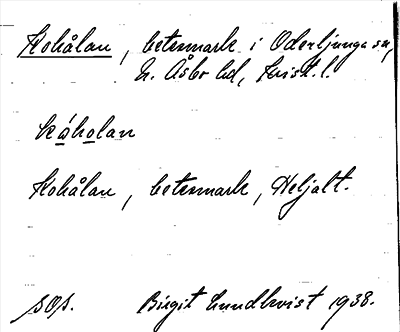 Kohålan, betesmark i Oderljunga sn,
N. Åsbo hd, Krist. l.
kåholan
Kohålan, betesmark, Heljalt.
sOs. Birgit Lundkvist 1938.